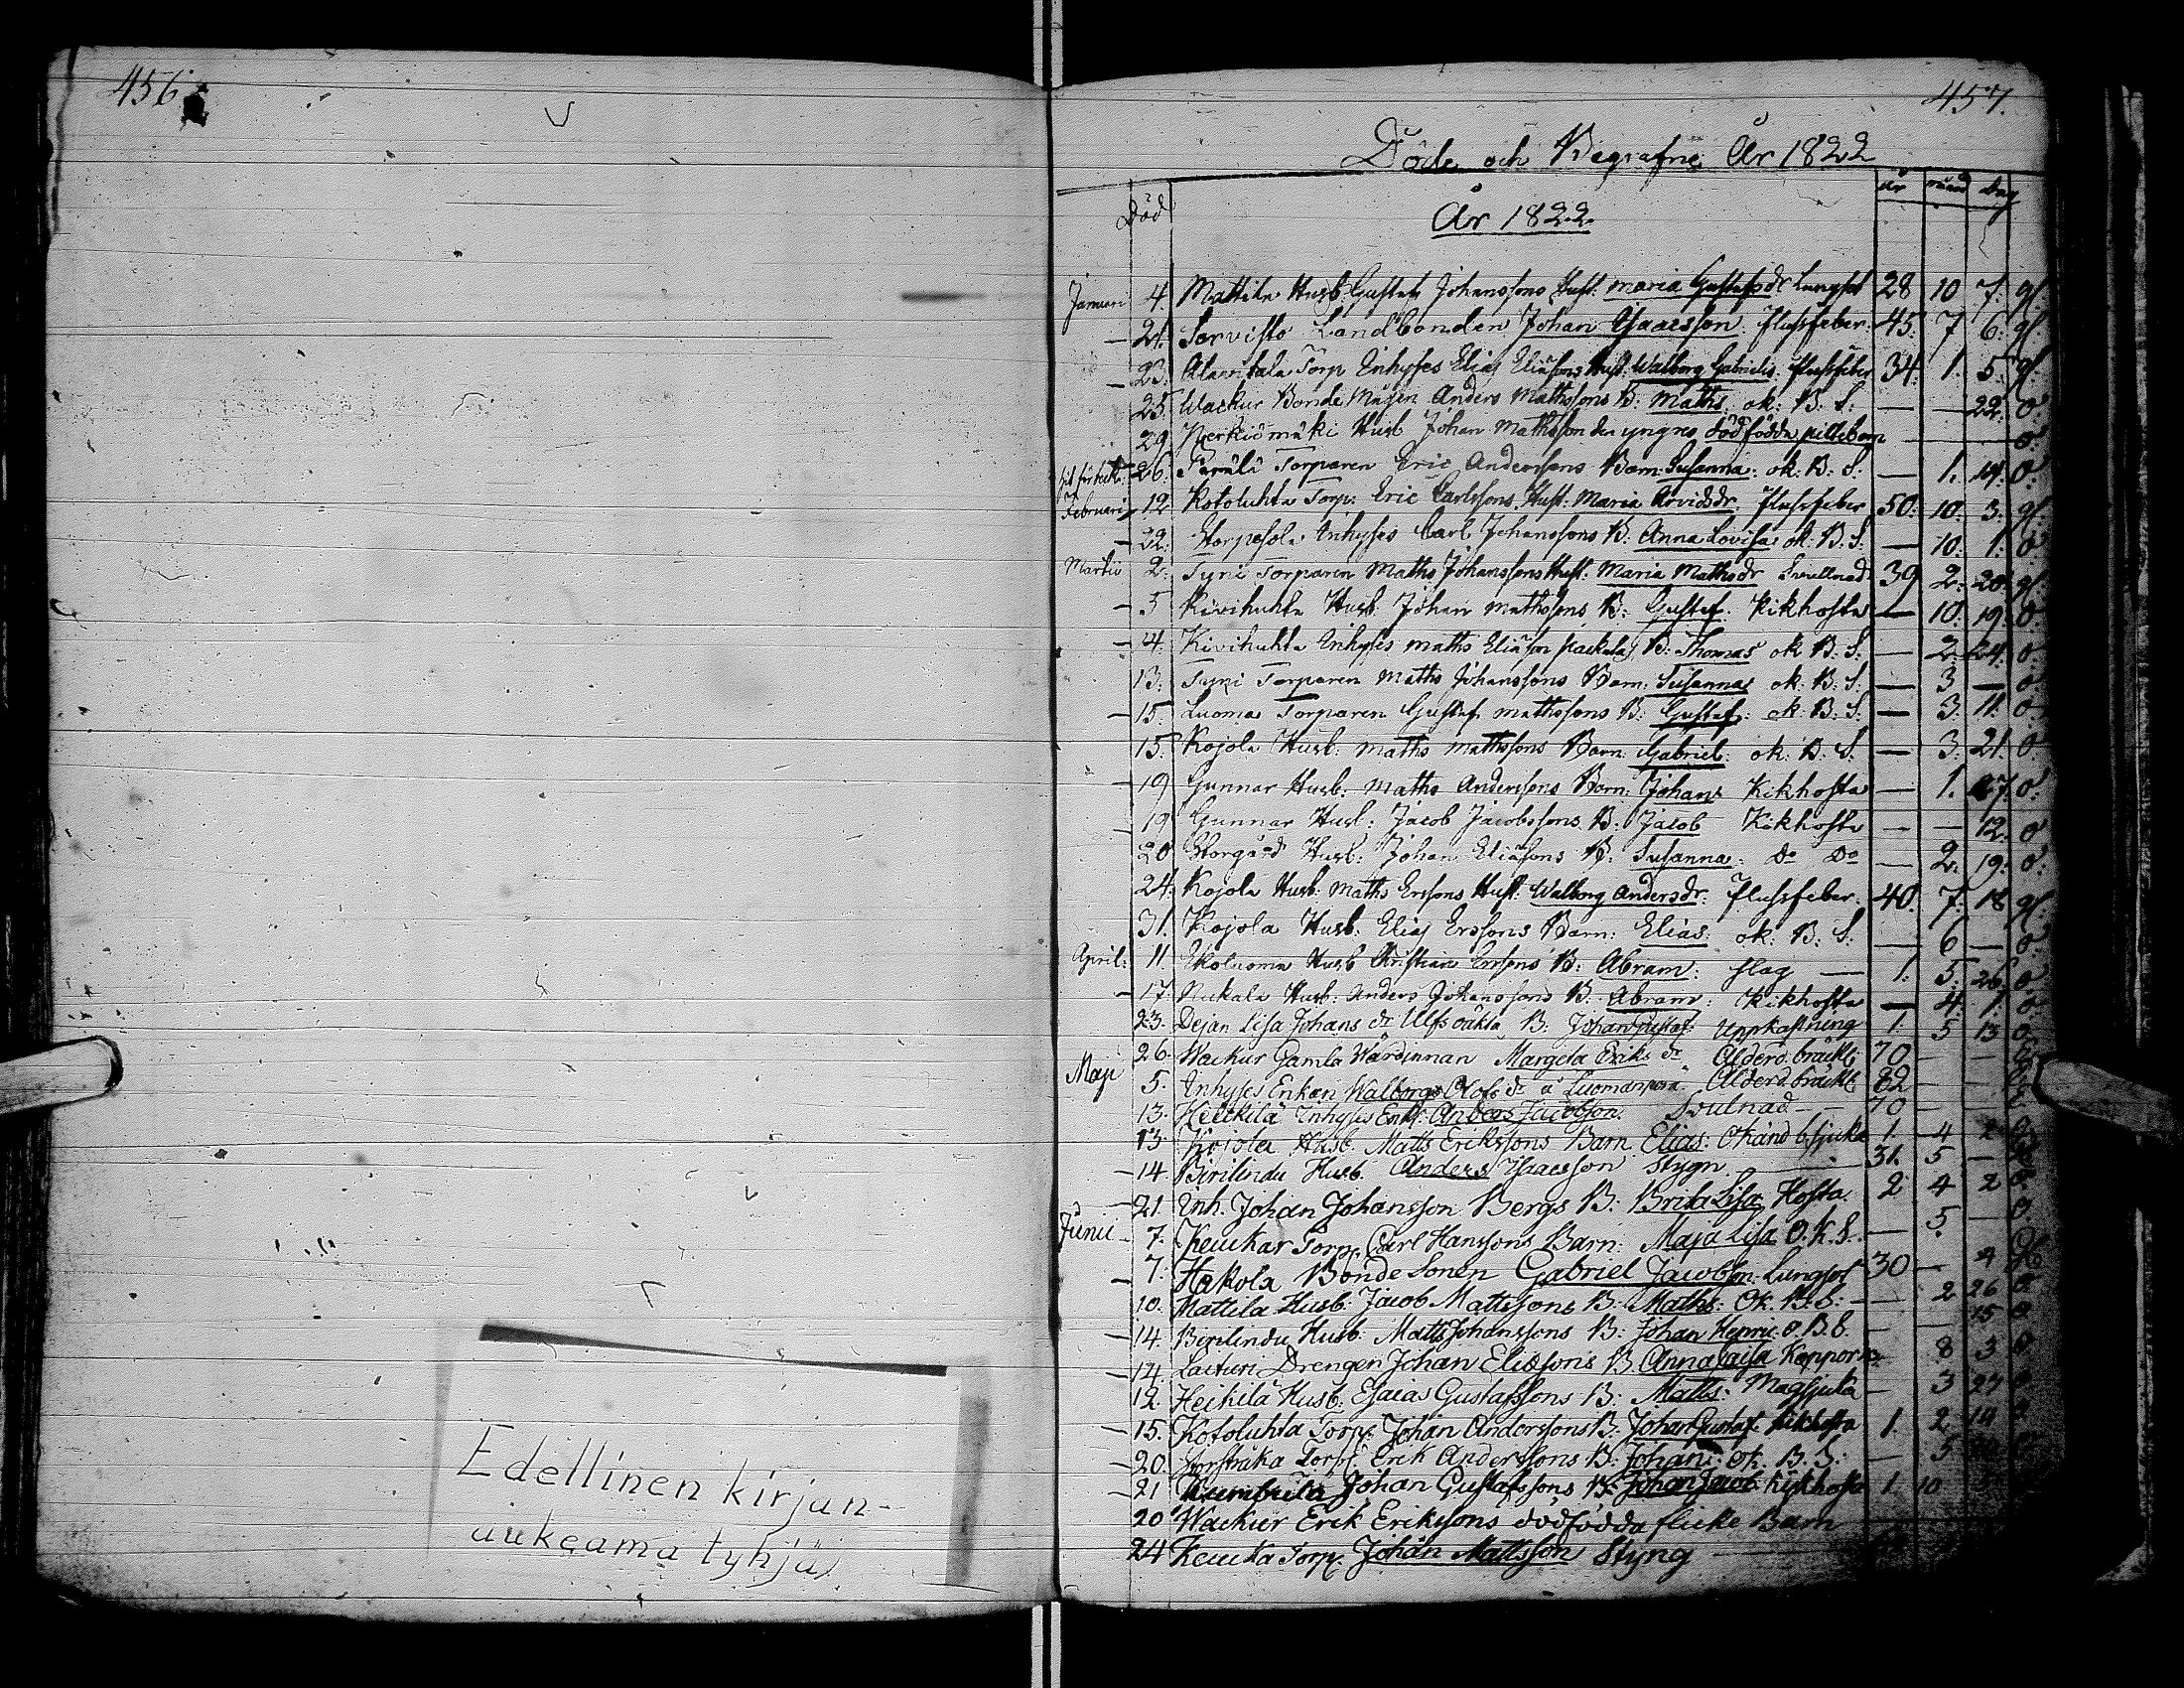 456
Edellinen kirjan-
aukeama tyhjä
457.
Döde och Begrafne År 1822
Död År 1822 år månad dag
Januari 4 Mattila Husb. Gustaf Johanssons Hust. Maria Gustafsdr Lungsot 28 10 7. gf.
— 21. Sorvisto Landbonden Johan Isacsson. flussfeber. 45. 7 6. gf.
— 23. Alawitala Torp Inhyses Elias Eliæsons Hust. Walborg Gabrielsd. flussfeber 34. 1. 5. gf.
25. Wackur Bonde Mågen Anders Mathssons B: Maths. ok: B: S: — — 22. o.
29 Herkiömäki Husb Johan Mathsson den yngres dödfödda piltebarn — o.
26. Torparen Eric Anderssons Barn: Susanna: ok: B: S: — 1. 14. o.
Februari 12 Kotoluhta Torp: Eric Carlssons Hust: Maria Arvidsdr. flussfeber 50. 10. 3. gf.
— 22. Inhyses Carl Johanssons B: Anna Lovisa ok: B: S: — 10. 1. o
Martii 2. Tyni Torparen Maths Johanssons Hust: Maria Mathsdr Svullnad 39 2. 20. gf.
— 5 Kivihuhta Husb. Johan Mathssons B: Gustaf. Kikhosta — 10. 19. o.
— 4. Kivihuhta Inhyses Maths Eliæson B: Thomas ok B: S: — 2. 24. o.
13. Tyni Torparen Maths Johanssons Barn: Susanna ok: B: S: — 3 — o.
— 15. Luoma Torparen Gustaf Mathssons B: Gustaf: ok: B: S: — 3. 11. o.
15. Kojola Husb: Maths Mathssons Barn: Gabriel: ok: B: S: — 3. 21. o
— 19 Gunnar Husb: Maths Anderssons Barn: Johan Kikhosta — 1. 27. o.
— 19 Gunnar Husb: Jacob Jacobssons B: Jacob Kikhosta — — 12. o
20 Storgård Husb: Johan Eliæsons B: Susanna: do do — 2. 19. o.
24. Kojola Husb: Maths Erssons Hust: Walborg Andersdr. flussfeber. 40. 7. 18 gf.
31. Kojola Husb: Elias Erssons Barn: Elias: ok: B: S: — 6 — o
April: 11. Ekoluoma Husb Christian Erssons B: Abram: slag — 1. 5. 26. o
— 17 Husb: Anders Johanssons B: Abram: Kikhosta — 4. 1. o.
23. Dejan Lisa Johans dr Ulfs oäkta B: Johan Gustaf: uppkastning 1. 5 13 o.
26. Wackur Gamla Wärdinnan Margeta Eriks dr Ålderd. bräckl: 70 — —
Maji 5. Inhyses Enkan Walborg Olofs dr å Luomanpera. Ålderd. bräckl: 82 — —
13. Heickilä Inhyses Anders Jacobson. Svulnad — 70 — —
13. Kojola Husb. Matts Erikssons Barn Elias: Okänd b. sjuka 1. 4
— 14 Husb. Anders Isacsson Stygn 31. 5 —
— 21. Inh. Johan Johansson Bergs B: Brita Lisa Hosta. 2 4 2 o
Junii — 7. Keuckar Torp. Carl Hanssons Barn: Maja Lisa O. K. S. — 5. — o
— 7. Hakola Bonde Sonen Gabriel Jacobson. Lungsot 30 — 4
10. Mattila Husb: Jacob Mattssons B: Maths: Ok. B: S: — 2 26 o
— 14. Husb: Matts Johanssons B: Johan Henric. o. B. S. — 15 o
— 14. Drengen Johan Eliæsons B Anna Caisa Koppor — 8 3 o
12. Heikilä Husb: Esaias Gustafssons B: Matts: Magsjuka — 3 27
— 15. Kotoluhta Torp: Johan Anderssons B: Johan Gustaf. Kikhosta 1. 2 14
— 20. Torp: Erik Anderssons B: Johan: ok. B: S: — 5
— 21 Johan Gustafssons B: Johan Jacob. Kikhosta 1. 10
20 Wackur Erik Erikssons dödfödda flicke Barn
24 Keucka Torp. Johan Mattsson Styng —